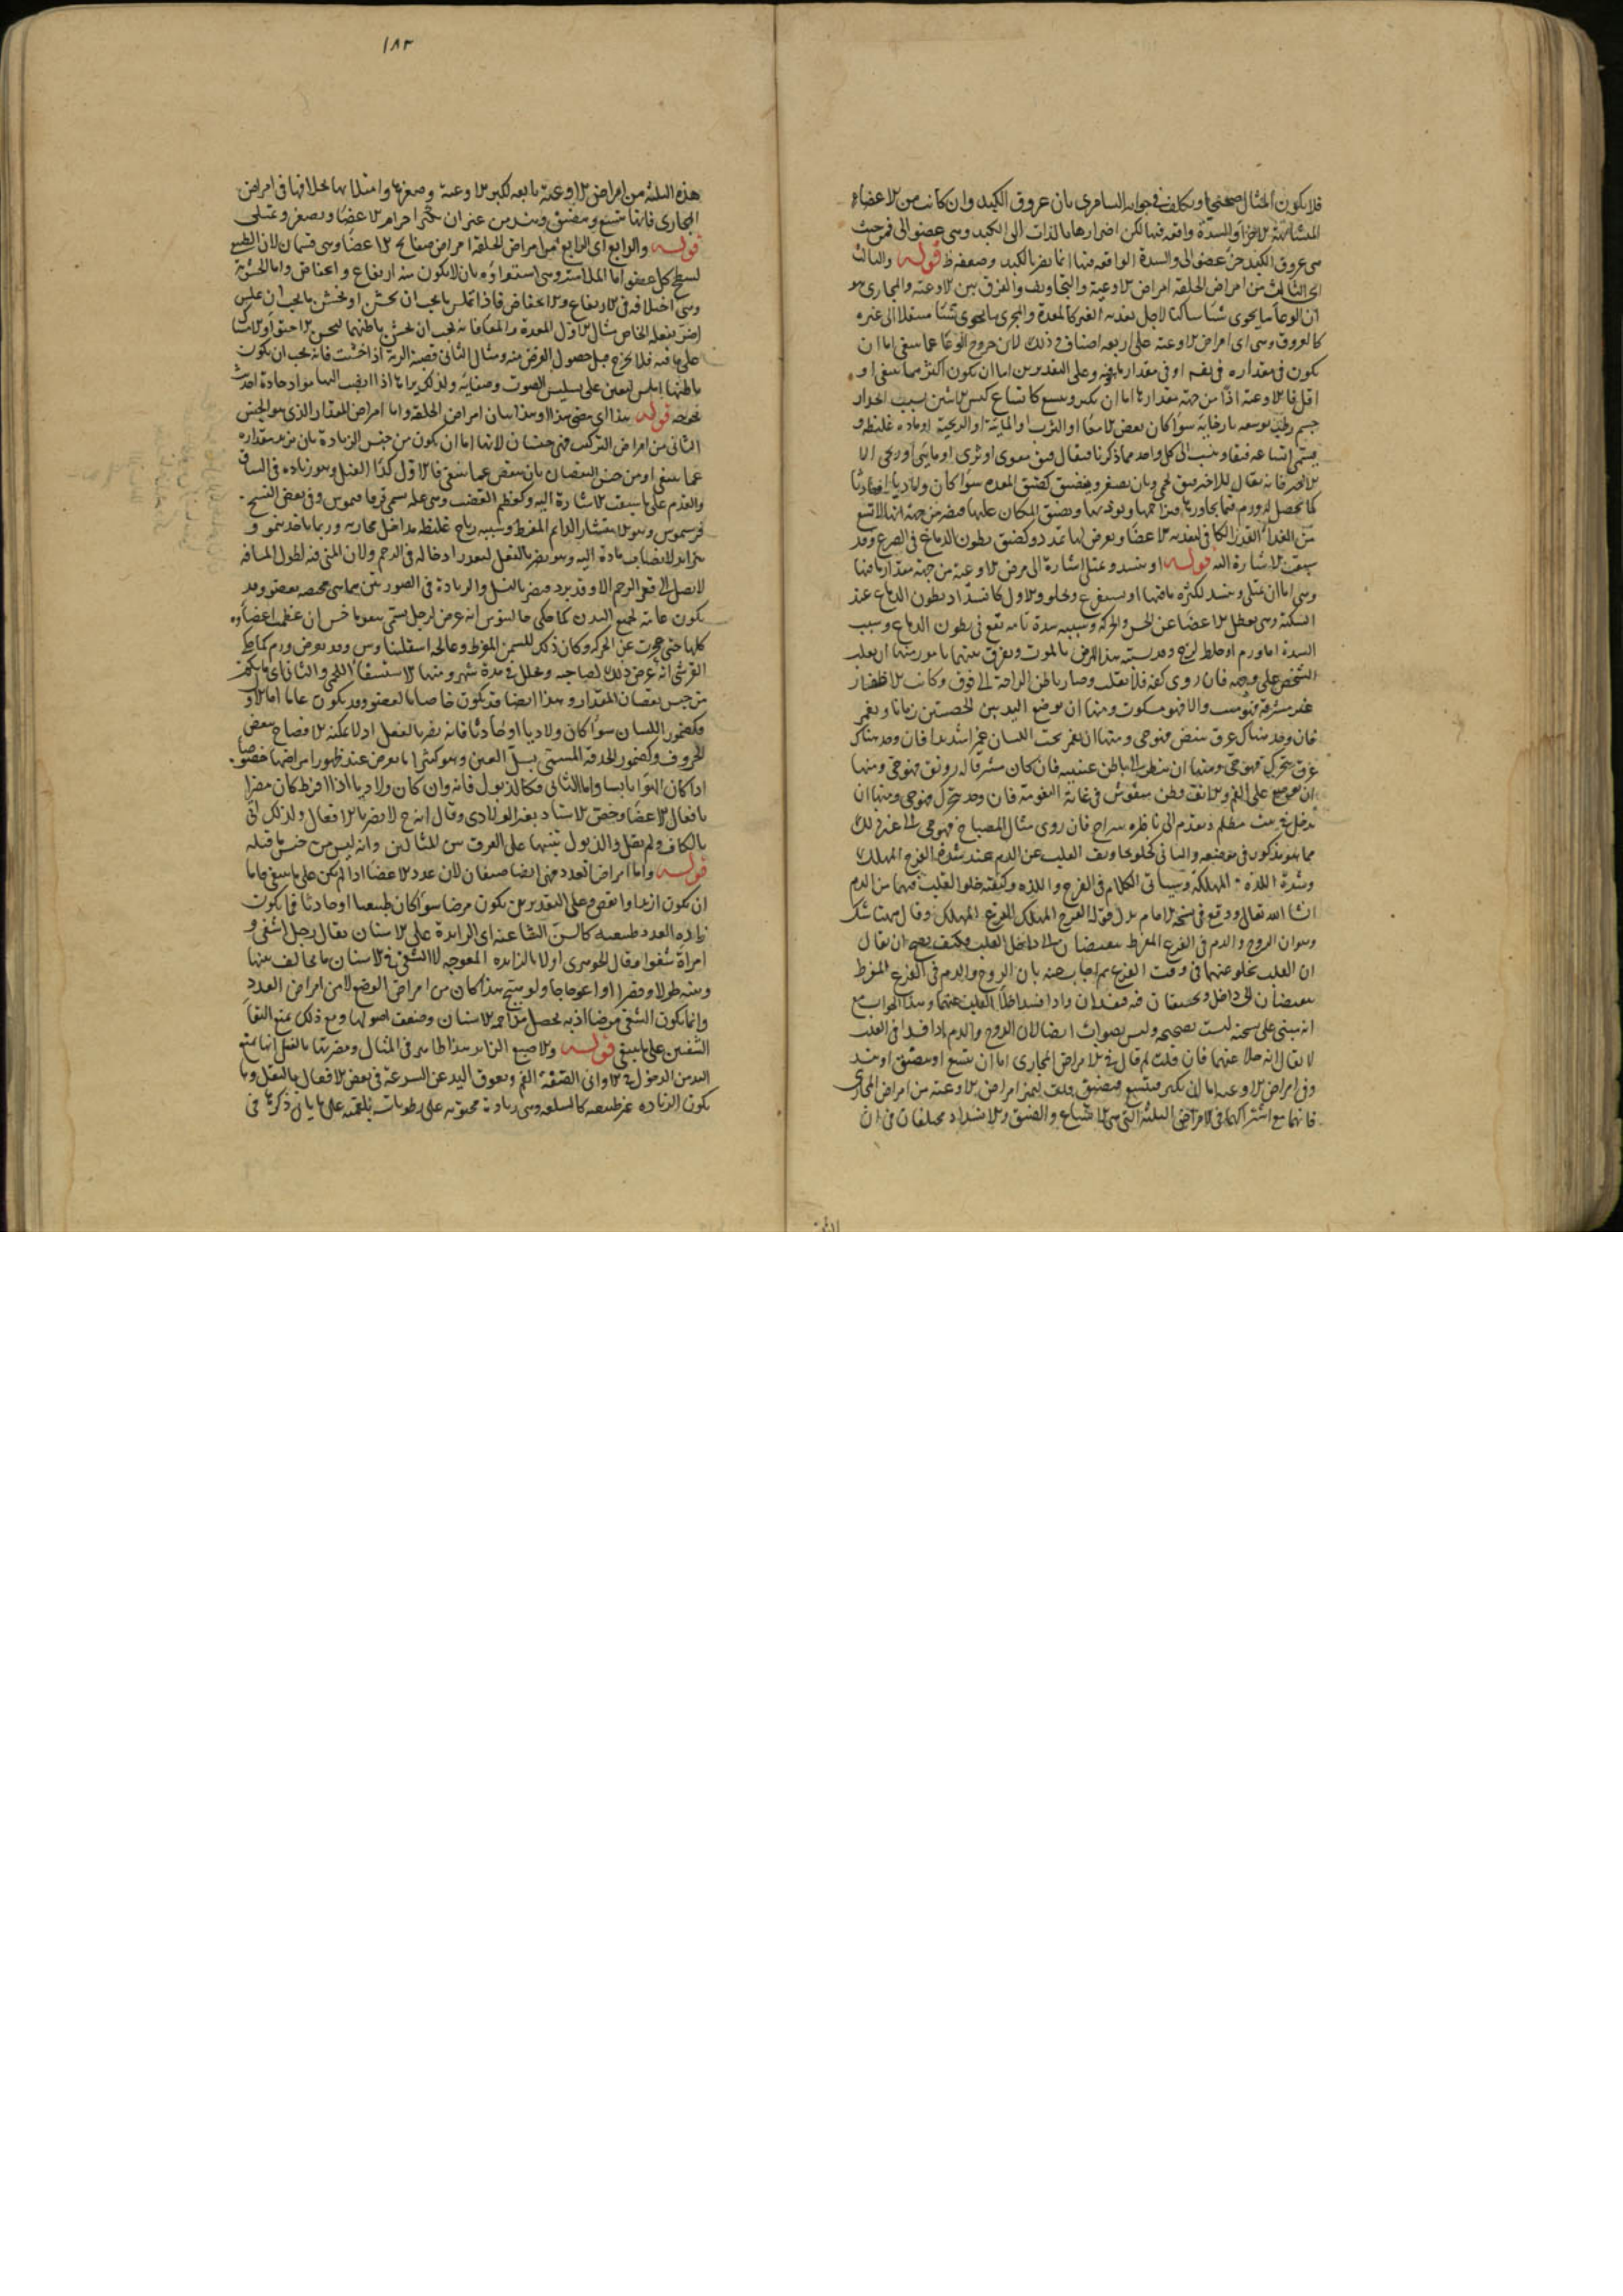 فلا يكون المثال صحيحا وتكلف في جوابه السامري بان عروق الكبد وان كانت من الاعضاء
المتشابهة الاجزاء والسدة واقعة فيها لكن اضرارها بالذات الى الكبد وهي عضو آلي فمن حيث
هي عروق الكبد جزء عضو آلي والسدة الواقعة فيها انما تضر بالكبد وضعفه ظ قوله والثالث
اي الثالث من امراض الخلقة امراض الاوعية والتجاويف والفرق بين الاوعية والمجاري هو
ان الوعاء ما يحوي شيئا ساكنا لاجل تغذية الغير كالمعدة والمجرى ما يحوي شيئا منتقلا الى غيره
كالعروق وهي اي امراض الاوعية على اربعة اصناف وذلك لان خروج الوعاء عما ينبغي اما ان
يكون في مقداره في نفسه او في مقدار ما فيه وعلى التقديرين اما ان يكون اكثر مما ينبغي او
اقل فالاوعية اذا من جهة مقدارها اما ان تكبر وتتسع كاتساع كيس الانثيين بسبب انحدار
جسم رطب يوسعه بارخائه سواء كان بعض الامعاء او الثرب او المائية او الريحية او مادة غليظة و
يسمى اتساعه فتقا وينسب الى كل واحد مما ذكرنا فيقال فتق معوي او ثربي او مائي او ريحي الا
الاخير فانه يقال للاخير فتق لحمي وبان تصغر وتضيق كضيق المعدة سواء كان ولاديا او حادثا
كما يحصل لورم فيما يجاورها فيزاحمها ويوذيها ويضيق المكان عليها فيضر من جهة انها لا تسع
من الغذاء القدر الكافي لتغذية الاعضاء ويعرض لها تمدد وكضيق بطون الدماغ في الصرع وقد
سبقت الاشارة اليه قوله او تنسد وتمتلئ اشارة الى مرض الاوعية من جهة مقدار ما فيها
وهي اما ان تمتلئ وتنسد لكثرة ما فيها او تستفرغ وتخلو والاول كانسداد بطون الدماغ عند
السكتة وهي تعطل الاعضاء عن الحس والحركة وسببه سدة تامة تقع في بطون الدماغ وسبب
السدة اما ورم او خلط لزج وقد يشتبه هذا المرض بالموت ويفرق بينهما بامور منها ان يقلب
الشخص على وجهه فان روي كفه فلا تقلب وصار باطن الراحة الى فوق وكانت الاظفار
غير مشرقة فهو ميت والا فهو مسكوت ومنها ان يوضع اليد بين الخصيتين زمانا ويغمز
فان وجد هناك عرق ينبض فهو حي ومنها ان يغمز تحت اللسان غمزا شديدا فان وجد هناك
عرق يتحرك فهو حي ومنها ان ينظر الى باطن عينيه فان كان مشرقا له رونق فهو حي ومنها
ان يوضع على الفم والانف قطن منفوش في غاية النعومة فان وجد يتحرك فهو حي ومنها ان
يدخل في بيت مظلم ويقدم الى ناظره سراج فان روي مثال المصباح فهو حي الى غير ذلك
مما هو مذكور في موضعه والثاني كخلو تجاويف القلب عن الدم عند شدة الفرح المهلك
وشدة اللذة المهلكة وسياتي الكلام في الفرح واللذة وكيفية خلو القلب فيهما من الدم
ان شا الله تعالى ووقع في نسخة الامام بدل قوله الفرح المهلك الفزع المهلك وقال ههنا شك
وهو ان الروح والدم في الفزع المفرط ينقبضان الى داخل القلب فكيف يصح ان يقال
ان القلب يخلو عنهما في وقت الفزع ثم اجاب عنه بان الروح والدم في الفزع المفرط
ينقبضان الى داخل ويحتقنان فيه فيفسدان واذا فسدا خلا القلب عنهما وهذا الجواب مع
انه مبني على نسخة ليست بصحيحة وليس بصواب ايضا لان الروح والدم اذا فسدا في القلب
لا يقال انه خلا عنهما فان قلت لم قال في الامراض المجاري اما ان تتسع او تضيق او تنسد
وفي امراض الاوعية اما ان تكبر فتتسع فتضيق قلت ليميز امراض الاوعية من امراض المجاري
فانهما مع اشتراكهما في الامراض الثلثة التي هي الاتساع والضيق والانسداد مختلفان في ان
١٨٣
هذه الثلثة من امراض الاوعية تابعة لكبر الاوعية وصغرها وامتلائها بخلافها في امراض
المجاري فانها تتسع وتضيق وتنسد من غير ان تكبر اجرام الاعضاء وتصغر وتمتلئ
قوله والرابع اي الرابع من امراض الخلقة امراض صفايح الاعضاء وهي قسمان لان الطبيعي
لسطح كل عضو اما الملاسة وهي استواؤه بان لا يكون فيه ارتفاع وانخفاض واما الخشونة
وهي اختلافه في الارتفاع والانخفاض فاذا تملس ما يجب ان يخشن او يخشن ما يجب ان يملس
اضر بفعله الخاص مثال الاول المعدة والمعا فانه يجب ان يخشن باطنهما
على ما فيه فلا يخرج قبل حصول الغرض منه ومثال الثاني قصبة الرية اذا خشنت فانه يجب ان يكون
باطنها املس ليعين على تسليس الصوت وصفائه ولذلك يراها اذا انصب اليها مواد حادة احدثت
بحوحة قوله هذا اي مضى هذا او هذا بيان امراض الخلقة واما امراض المقدار الذي هو الجنس
الثاني من امراض التركيب فهي جنسان لانها اما ان يكون من جنس الزيادة بان يزيد مقداره
عما ينبغي او من جنس النقصان بان ينقص عما ينبغي فالاول كداء الفيل وهو زيادة في الساق
والقدم على ما سبقت الاشارة اليه وكعظم القضيب وهي علة تسمى قريافسموس وفي بعض النسخ
فرسموس وهو الانتشار الدائم المفرط وسببه رياح غليظة تداخل مجاريه وربما ياخذ ينمو و
يتزايد لانصباب مادة اليه وهو يضر بالفعل لتعذر ادخاله في الرحم ولان المني فيه لطول المسافة
لا يصل الى قعر الرحم الا وقد برد فيضر بالنسل والزيادة في الصورتين مما هي مختصة بعضو وقد
يكون عامة لجميع البدن كما حكى جالينوس انه عرض لرجل يسمى نيقوماخس ان عظمت اعضاوه
كلها حتى عجزت عن الحركة وكان ذلك للسمن المفرط وعالجه اسقلبيادس وقد يعرض ورم كما حكى
القرشي انه عرض ذلك لصاحبه وتحلل في مدة شهر ومنها الاستسقاء اللحمي والثاني اي ما يكون
من جنس نقصان المقدار وهذا ايضا قد يكون خاصا بالعضو وقد يكون عاما اما الاول
فكضمور اللسان سواء كان ولاديا او حادثا فانه يضر بالفعل اذ لا يمكنه الافصاح ببعض
الحروف وكضمور الحدقة المسمى بسل العين وهو كثيرا ما يعرض عند ظهور امراضها خصوصا
اذا كان الهواء يابسا واما الثاني فكالذبول فانه وان كان ولاديا اذا افرط كان مضرا
بافعال الاعضاء وخص الاستاد بغير الولادي وقال انه لا يضر بالافعال ولذلك اتى
بالكاف ولم يقل والذبول تنبيها على الفرق بين المثالين وانه ليس من جنس ما قبله
قوله واما امراض العدد فهي ايضا صنفان لان عدد الاعضاء اذا لم يكن على ما ينبغي فاما
ان يكون ازيد او انقص وعلى التقديرين يكون مرضا سواء كان طبيعيا او حادثا فما يكون
زيادة العدد طبيعية كالسن الشاغية اي الزايدة على الاسنان يقال رجل اشغى و
امراة شغوا وقال الجوهري اولا بالزايدة المعوجة لا الشغى في الاسنان ما يخالف نبتها
ونبته طولا وقصرا او اعوجاجا ولو صح هذا كان من امراض الوضع لا من امراض العدد
وانما يكون الشغى مرضا اذ به يحصل مزاحمة الاسنان وضعف اصولها ومع ذلك يمنع التقاء
الشفتين على ما ينبغي قوله والاصبع الزايد هذا ظاهر في المثال ومضرتها بالفعل انها تمنع
اليد من الدخول في الاواني الضيقة الفم ويعوق اليد عن السرعة في بعض الافعال بالثقل وما
يكون الزيادة غير طبيعية كالسلعة وهي زيادة محتوية على رطوبات بلغمية على ما ياتي ذكرها في